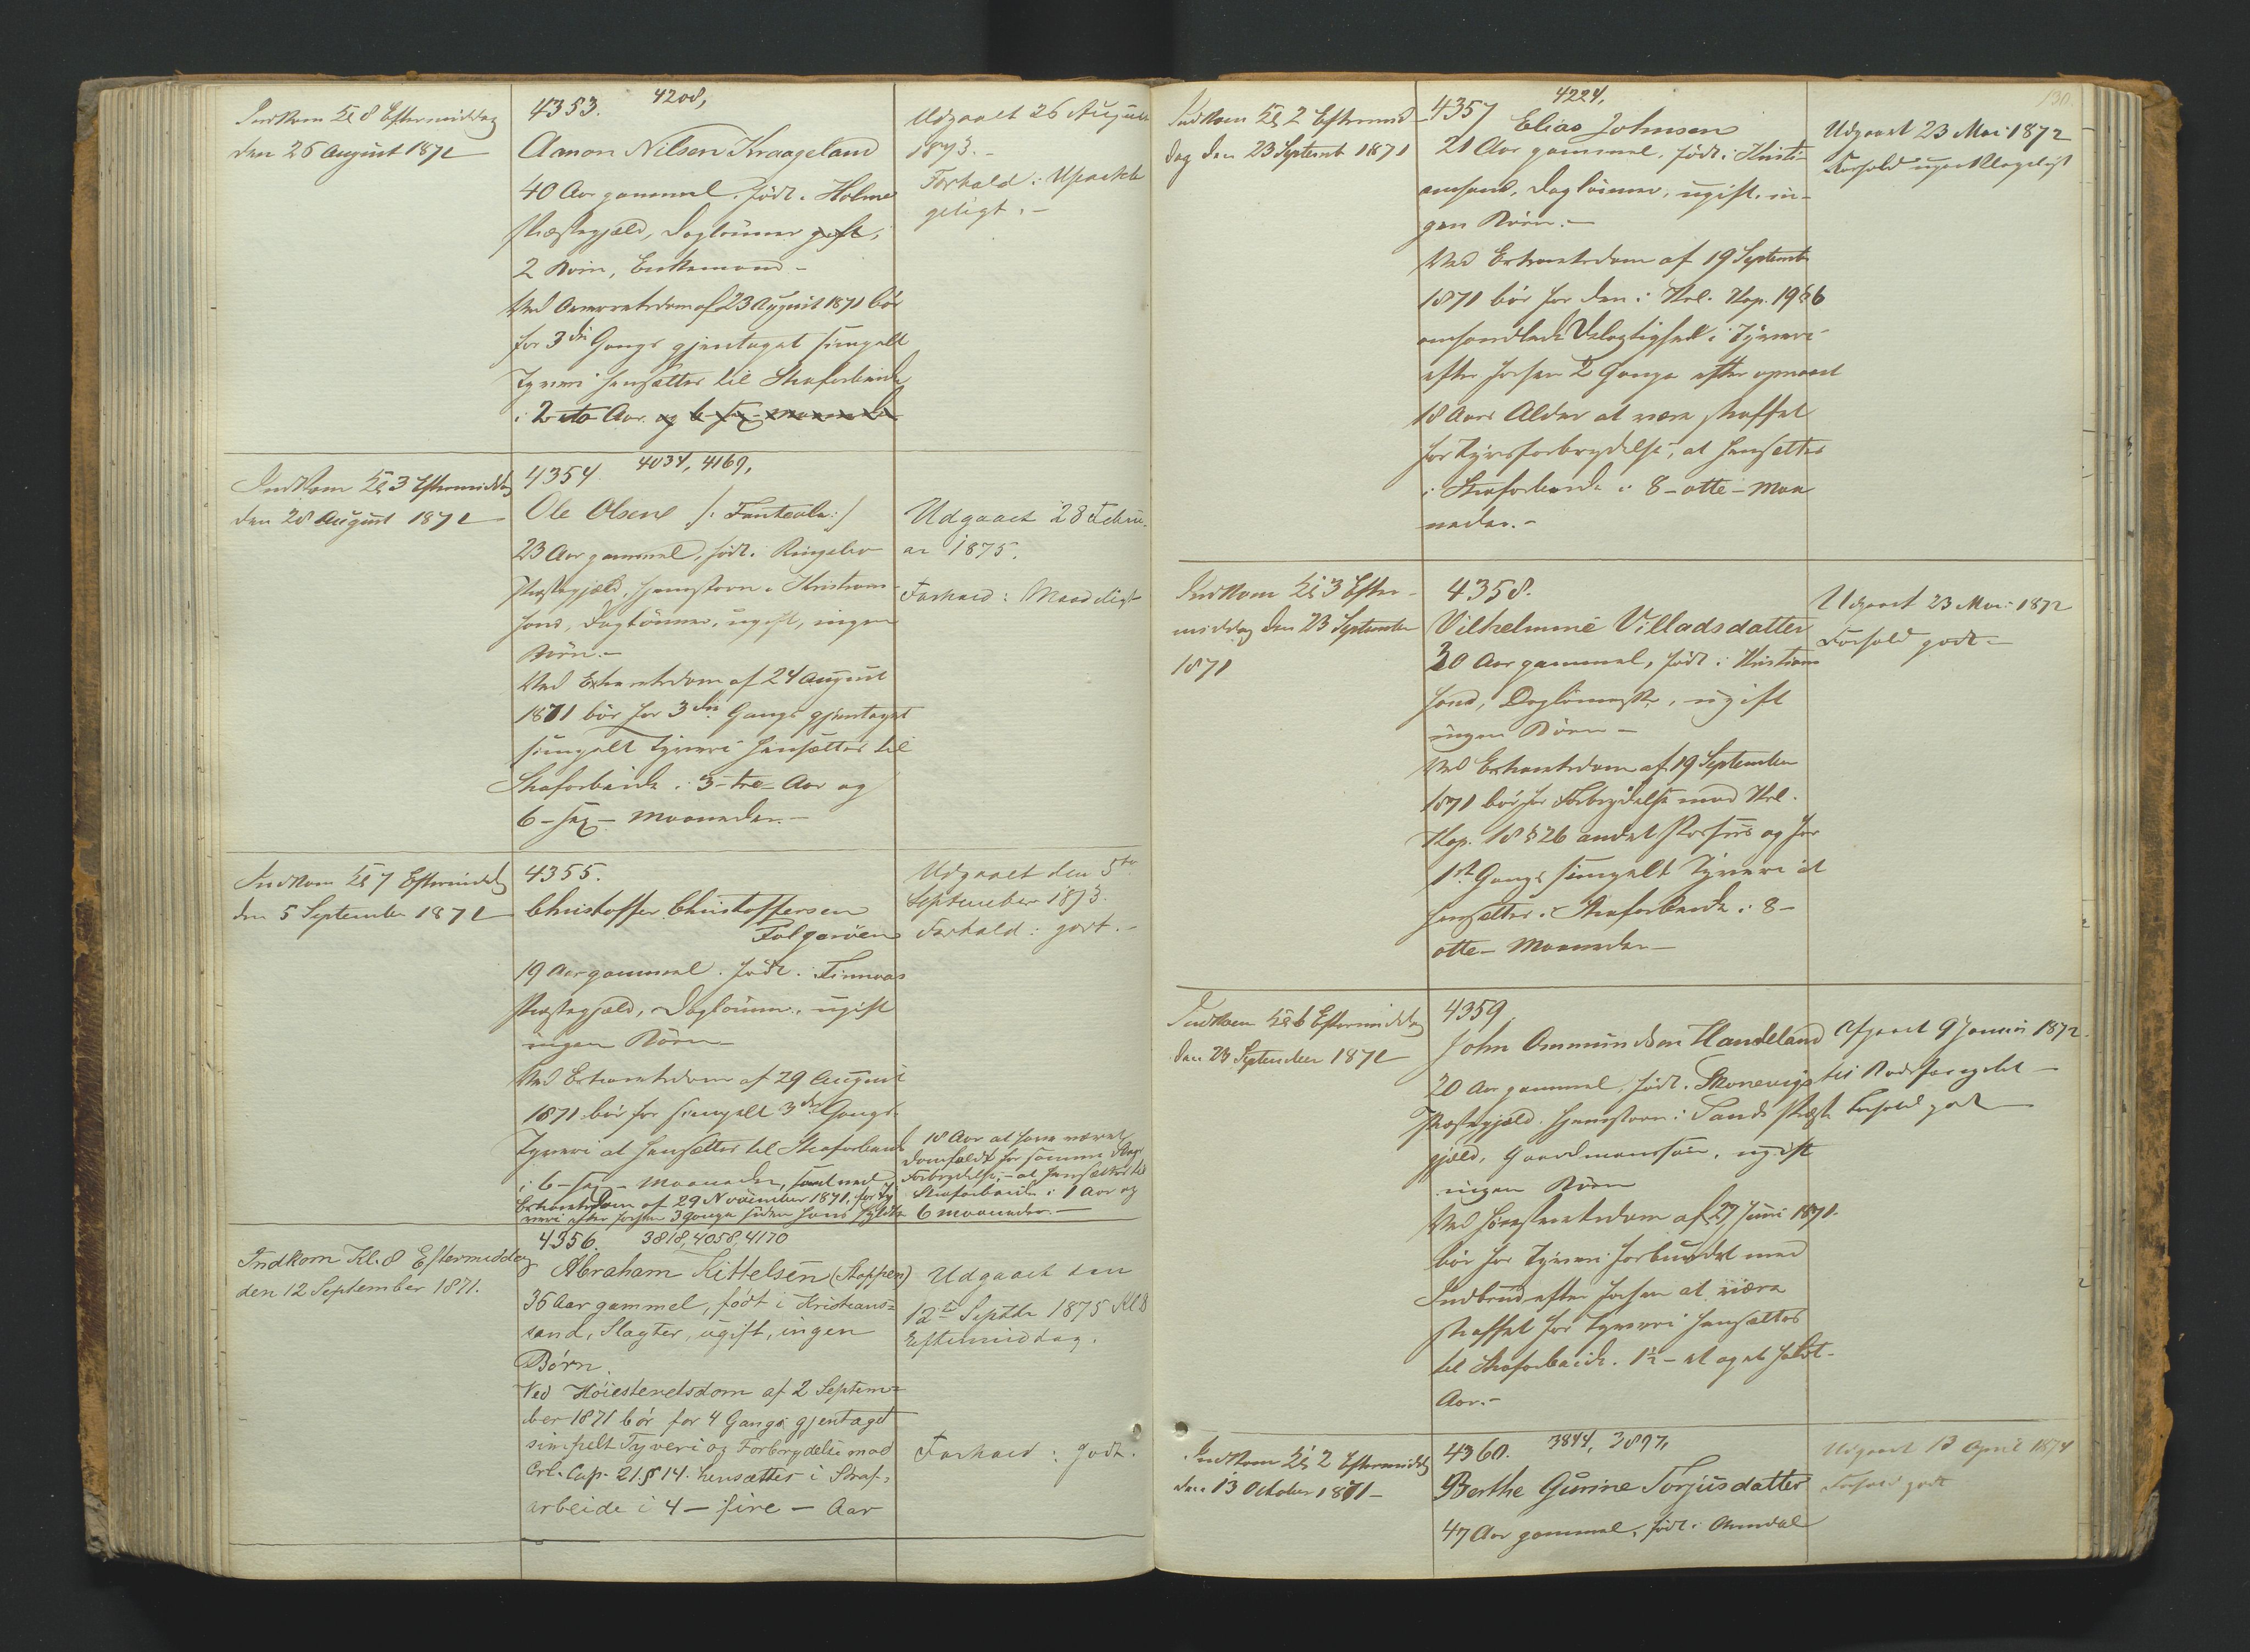 Indkom Kl 8 Eftermiddag
den 26 August 1871
4353. 4208,
Aanon Nilsen Kraageland
40 Aar gammel, født i Holme
Præstegjæld, Daglønner gift,
2 Børn, Enkemand -
Ved Overretsdom af 23 August 1871 bør
for 3die Gangs gjentaget simpelt
Tyveri hensættes til Strafarbeide
i 2 to Aar og 6 sex Maaneder
Udgaaet 26 August
1873. -
Forhold: Upaakla
geligt. -
Indkom Kl 3 Eftermiddag
den 28 August 1871
4354 4034, 4169,
Ole Olsen /: Fanteola :/
23 Aar gammel, født i Ringebo
Præstegjæld, hjemstavn i Kristians-
sand, Daglønner, ugift, ingen
Børn. -
Ved Extraretsdom af 24 August
1871 bør for 3die Gangs gjentaget
simpelt Tyveri hensættes til
Strafarbeide i 3 - tre - Aar og
6 - sex - Maaneder. -
Udgaaet 28 Febru-
ar 1875.
Forhold: Maadeligt
Indkom Kl 7 Eftermiddag
den 5 September 1871
4355.
Christoffer Christoffersen
Folgerøen
19 Aar gammel, født i Finnaas
Præstegjæld, Daglønner, ugift
ingen Børn -
Ved Extraretsdom af 29 August
1871 bør for simpelt 3die Gangs
Tyveri at hensættes til Strafarbeide
i 6 - sex - Maaneder, samt ved
Extraretsdom af 29 November 1871, for Ty
veri efter forhen 3 Gange siden hans fyldte
18 Aar at have været
domfældt for samme Slags
Forbrydelse, - at hensættes til
Strafarbeide i 1 Aar og
6 Maaneder. -
Udgaaet den 5te
September 1873.
Forhold: godt. -
Indkom Kl. 8 Eftermiddag
den 12 September 1871.
4356. 3818, 4058, 4170
Abraham Kittelsen (Stoppen)
36 Aar gammel, født i Kristians=
sand, Slagter, ugift, ingen
Børn.
Ved Höiesteretsdom af 2 Septem=
ber 1871 bör for 4 Gangs gjentaget
simpelt Tyveri og Forbrydelse mod
Crl. Cap. 21 § 14. hensættes i Straf=
arbeide i 4 - fire - Aar
Udgaaet den
12te Septbr 1875 Kl 8
Eftermiddag.
Forhold: godt.
130.
Indkom Kl 2 Eftermid-
dag den 23 Septemb 1871
4357 4224,
Elias Johnsen
21 Aar gammel, født i Kristi-
ansand, Daglønner, ugift, in-
gen Børn. -
Ved Extraretsdom af 19 Septembr
1871 bør for den i Krl. Kap. 19 § 6
omhandlede Delagtighed i Tyveri
efter forhen 2 Gange efter opnaaet
18 Aars Alder at være straffet
for Tyvsforbrydelse, at hensættes
i Strafarbeide i 8 - otte - Maa
neder. -
Udgaaet 23 Mai 1872
Forhold uparklageligt
Indkom Kl 3 Efter-
middag den 23 September
1871
4358.
Vilhelmine Villadsdatter
30 Aar gammel, født i Kristians
sand, Daglønnerske, ugift
ingen Børn -
Ved Extraretsdom af 19 September
1871 bør for Forbrydelse mod Krl.
Kap. 18 § 26 andet Passus og for
1ste Gangs simpelt Tyveri at
hensættes i Strafarbeide i 8 -
otte - Maaneder -
Udgaaet 23 Mai 1872
Forhold godt -
Indkom Kl 6 Eftermiddag
den 23 September 1871
4359,
John Ommundsen Handeland
20 Aar gammel, født i Skonevigs
Præstegjæld, hjemstavn i Sands Præste
gjæld, Gaardmandssøn, ugift
ingen Børn
Ved Høiesteretsdom af 27 Juni 1871.
bør for Tyveri forbundet med
Indbrud efter forhen at være
straffet for Tyveri hensættes
til Strafarbeide i 1½ - et og et halvt -
Aar. -
Afgaaet 9 Januar 1872.
til Bodsfængslet -
Forhold godt
Indkom Kl 2 Eftermiddag
den 13 October 1871 -
4360. 3844, 3897,
Berthe Gurine Torjusdatter
47 Aar gammel, født i Arendal
Udgaaet 13 April 1874
Forhold godt